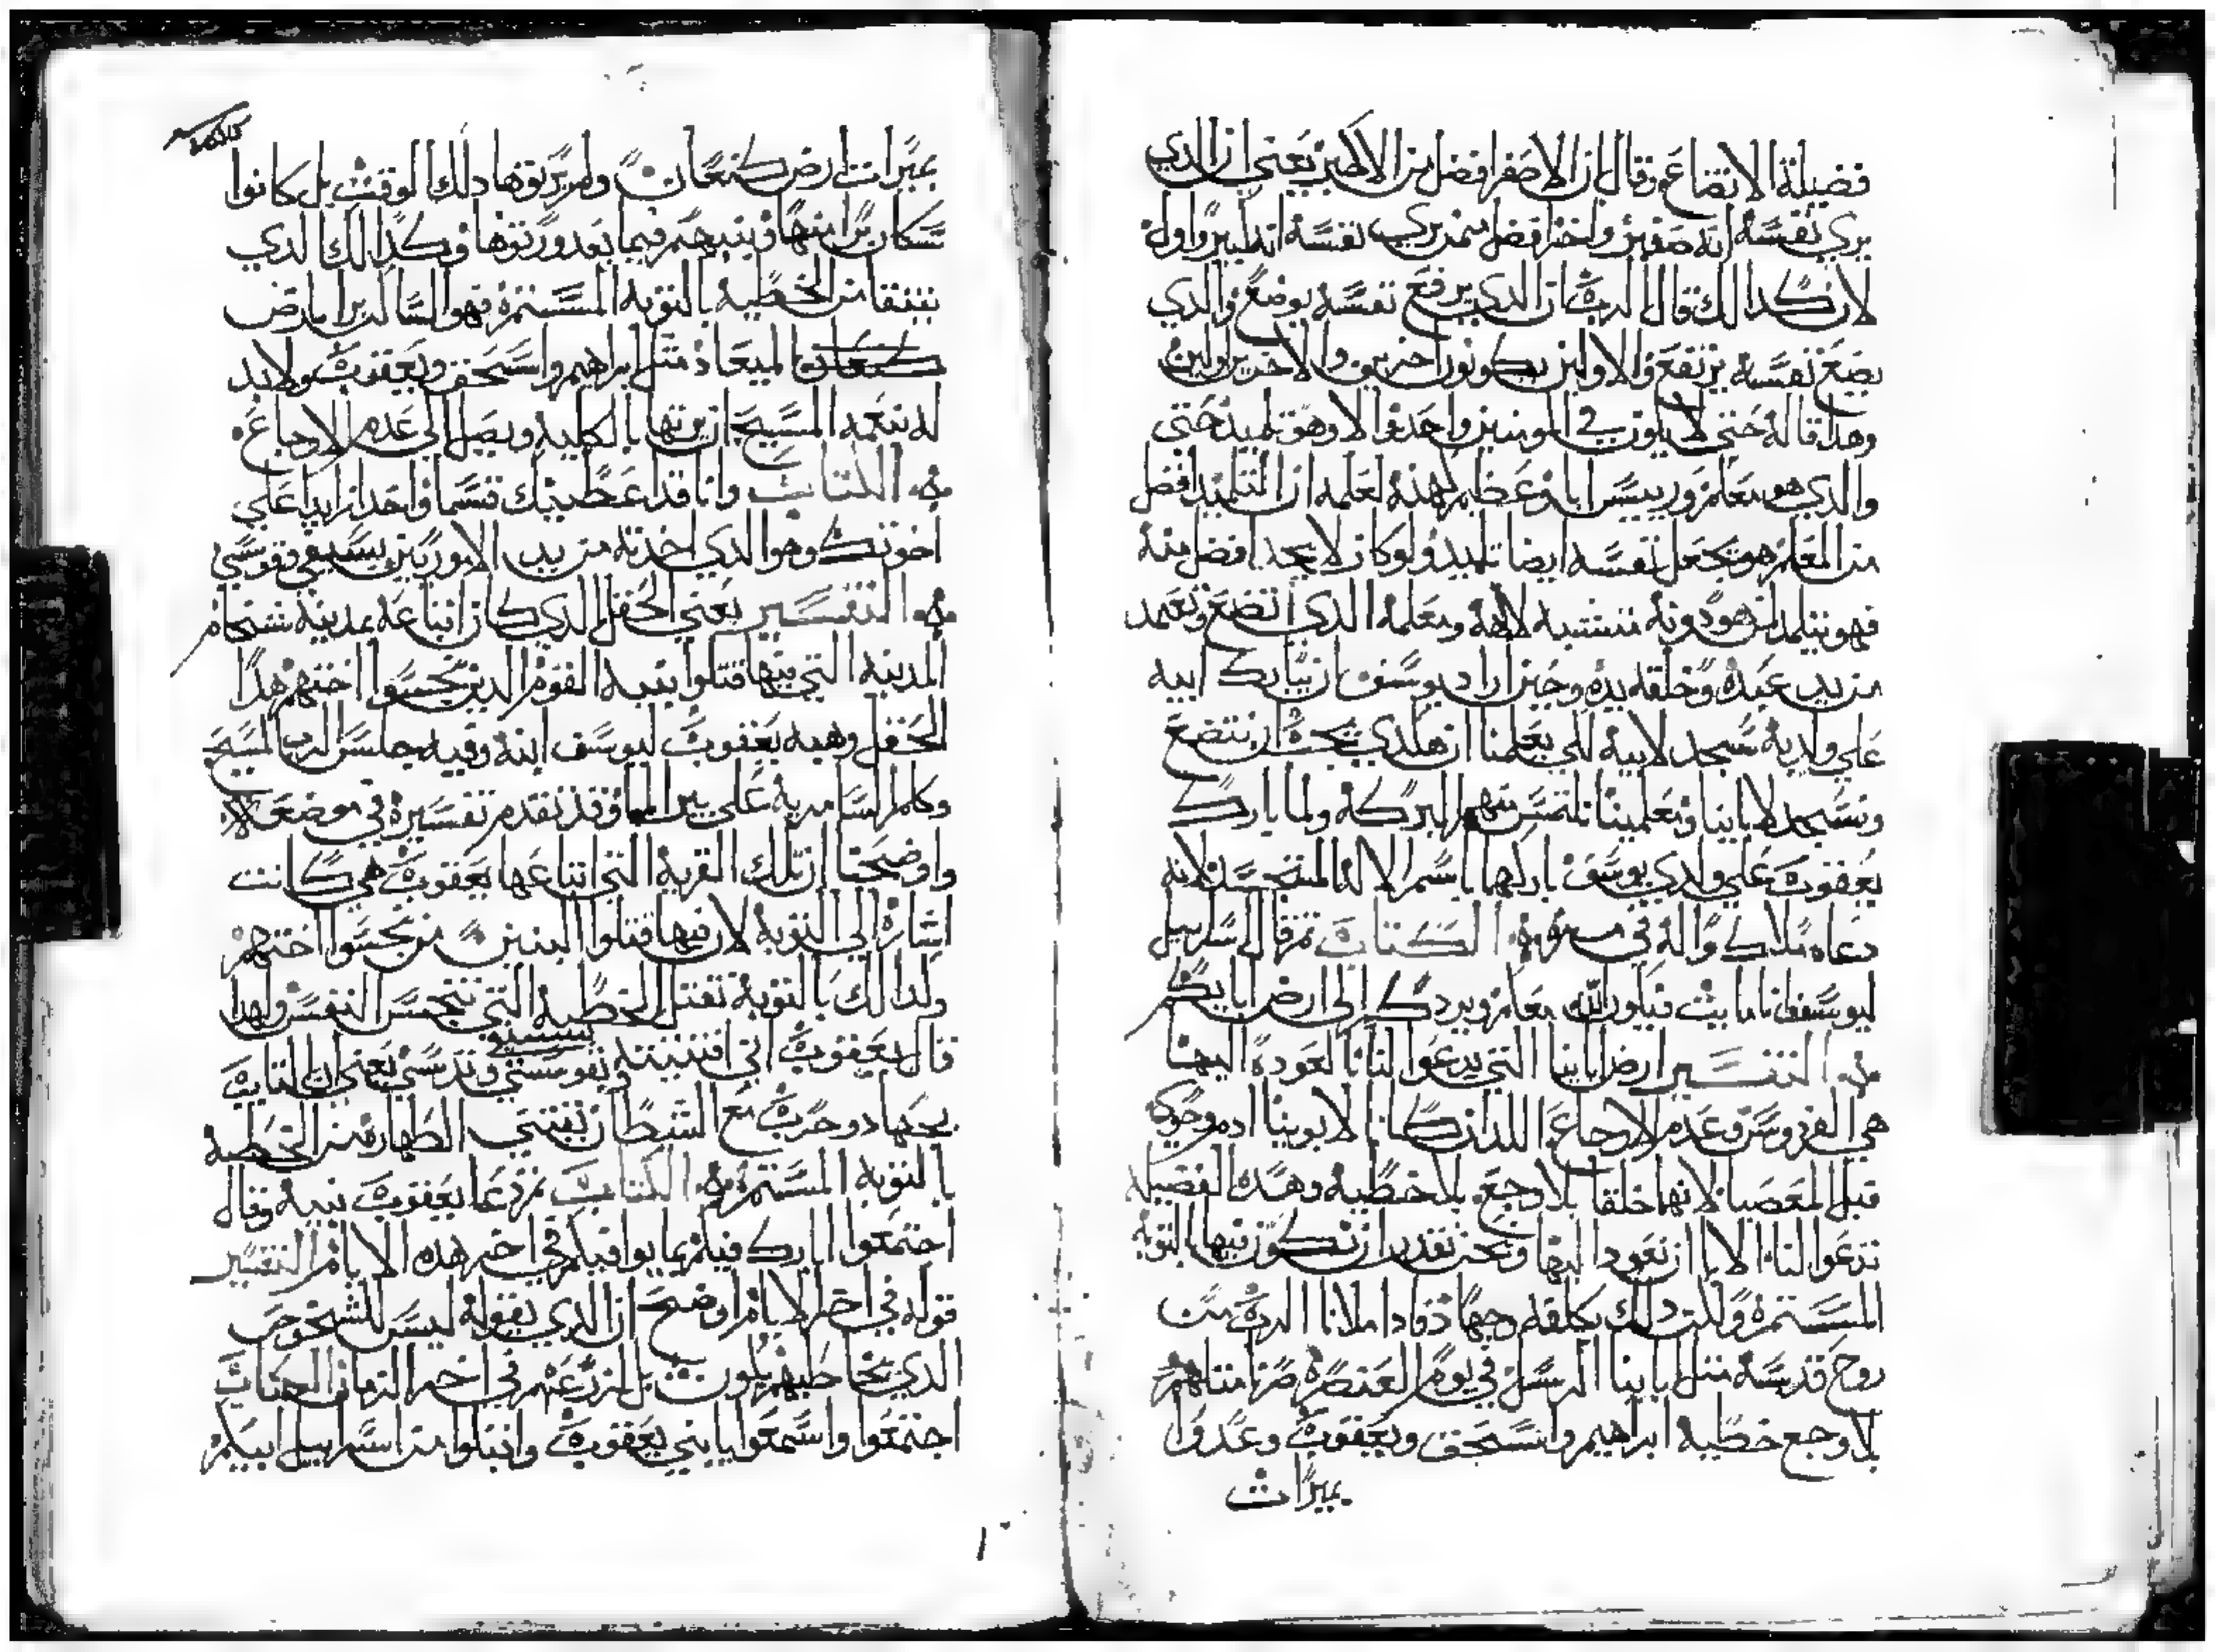 فضيلة الاتضاع وقال ان الاصغر افضل من الاكبر يعني ان الدي
يري نفسه انه صغير واخر افضل ممن يري نفسه انه كبير واول
لان كدالك قال الرب ان الدي يرفع نفسه يوضع والدي
يضع نفسه يرتفع والاولين يكونون اخرين والاخرين اولين
وهدا قاله حتى لا يكون في المومنين واحدا الا وهو تلميد حتى
والدي هو معلم وريسا باد وعظيم لهده لعلمه ان التلميد افضل
من المعلم هو يجعل نفسه ايضا تلميد ولو كان لا يجد افضل منه
فهو يتلمد لمن هو دونه تشبه لالاهه ومعلمه الدي اتضع وتعمد
من يد عبده وخلقه يده وحين اراد يوسف ان يبارك ابيه
علي ولديه سجد لابيه لكي يعلمنا ان هكدي يجب ان نتضع
ونسجد لابابنا ومعلمينا نلتمس منهم البركه ولما بارك
يعقوب علي ولدي يوسف باركها باسم الاله المتجسد لانه
دعاه ملاك واله في الكتاب ثم قال اسراييل
ليوسف انا مايت فيكون الله معكم ويردكم الى ارض ابايكم
التفسير ارض ابابنا التي يدعوا لنا بالعوده اليها
هي الفردوس وعدم الاوجاع اللدان كانا لابوينا ادم وحوي
قبل المعصيا لانهما خلقا بلا وجع وبلا خطيه وهده الفضيله
تدعوا لنا الابا ان نعود اليها ونحن نقدر ان نكون فيها بالتوبه
المستمره ولكن دلك بكلفه وجهاد فادا ملانا الرب من
روح قدسه متل ابابنا الرسل في يوم العنصره صرنا متلهم
بلا وجع خطيه ابراهيم واسحق ويعقوب وعدوا
بميرات
بميرات ارض كنعان ولم يرتوها دلك الوقت بل كانوا
سكان بين امتها وبنيهم فيما بعد ورتوها وكدالك الدي
يتنقا من الخطيه بالتوبه المستمره فهو الساكن بارض
كنعان الميعاد متل ابراهيم واسحق ويعقوب ولابد
له بنعمه المسيح ان يرتها بالكليه ويصل الى عدم الاوجاع
الكتاب وانا قد اعطيتك قسما واحدا زايدا علي
اخوتك وهو الدي اخدته من يد الاموريين بسيفي وقوسي
التفسير يعني الحقل الدي كان ابتاعه بمدينة شخام
المدينه التي فيها قتلوا بنيه القوم الدين نجسوا اختهم هدا
الحقل وهبه يعقوب ليوسف ابنه وفيه جلس الرب المسيح
وكلم السامريه علي بير الما وقد تقدم تفسيره في موضعه
واوضحنا ان تلك القريه التي ابتاعها يعقوب هي كانت
اشاره الي التوبه لان فيها قتلوا البنين من نجسوا اختهم
ولدالك بالتوبه تقتل الخطيه التي تنجس النفس ولهدا
قال يعقوب اني اقتنيته بسيفي وقوسي يعني ان التايب
بجهاد وحرب مع الشيطان يقتني الطهاره من الخطيه
بالتوبه المستمره الكتاب ثم دعا يعقوب بنيه وقال
اجتمعوا ابارك فيكم بما يوافيكم في اخر هده الايام التفسير
قوله في اخر الايام اوضح ان الدي يقوله ليس للشخوص
الدي يخاطبهم يكون بل لمن زرعهم في اخر الزمان الكتاب
اجتمعوا واسمعوا يا بني يعقوب واقبلوا من اسراييل ابيكم